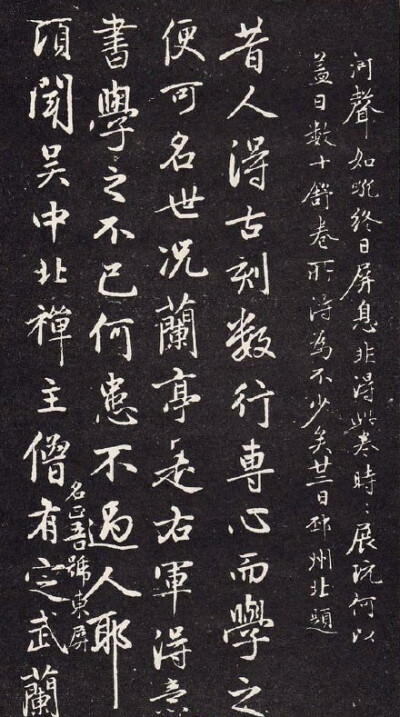 河聲如吼終日屏息非得此卷時：展玩何以
蓋日數十舒卷所得為不少矣廿三日邳州北題
昔人得古刻數行專心而學之
便可名世況蘭亭是右軍得意
書學之不已何患不過人耶
頃聞吳中北禪主僧有定武蘭
名正吾號東屏